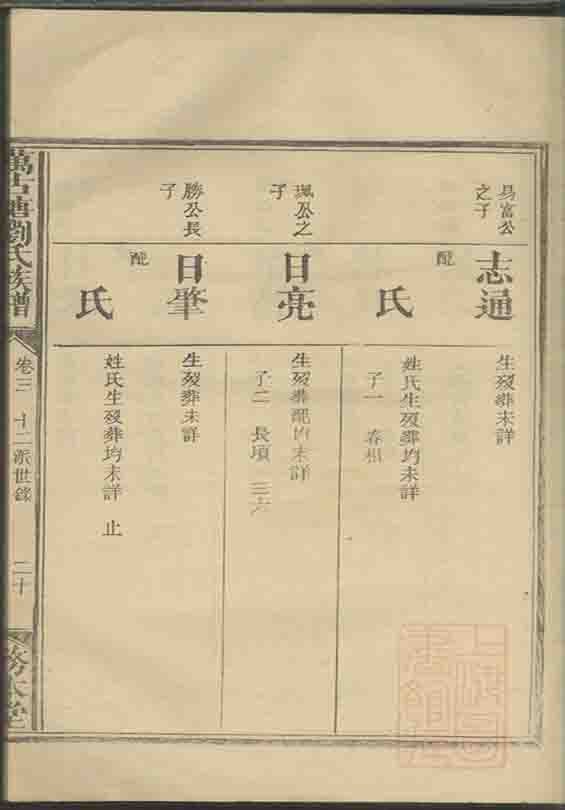 易富公
之子
志通
生歿葬未詳
配
氏
姓氏生歿葬均未詳
子一
珮公之
子
日亮
生歿葬配均未詳
子二 長頃 三
勝公長
子
日肇
生歿葬未詳
配
氏
姓氏生歿葬均未詳 止
塘劉氏族譜
卷三 十二派世錄
二十
本堂